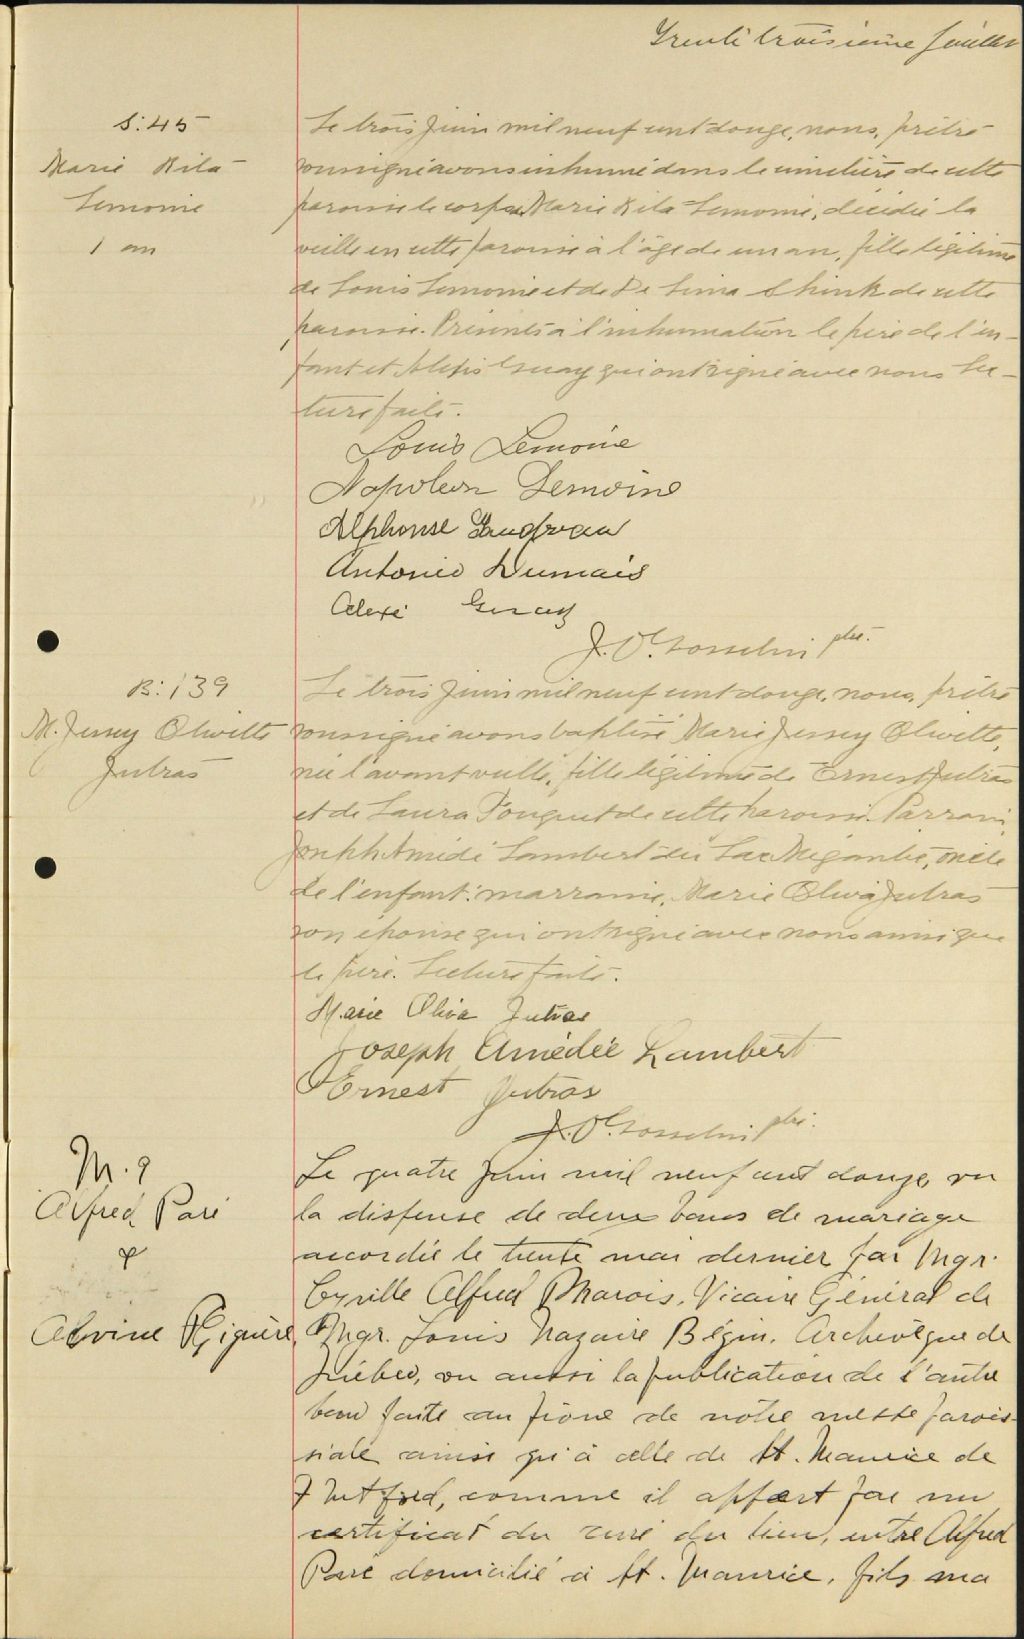 Trente troisième feuillet
S: 45
Marie Rita
Lemoine
1 an
Le trois Juin mil neuf cent douze, nous, prêtre
soussigné avons inhumé dans le cimetière de cette
paroisse le corps de Marie Rita Lemoine, décédée la
veille en cette paroisse à l'âge de un an, fille légitime
de Louis Lemoine et de De Lima Shink de cette
paroisse. Présents à l'inhumation le père de l'en-
fant et Alexis Guay qui ont signé avec nous Lec-
ture faite.
Louis Lemoine
Napoleon Lemoine
Alphonse Gaudreau
Antonio Dumais
Alexi Guay
J. O. Gosselin ptre.
B: 139
M. Jenny Olivette
Jutras
Le trois Juin mil neuf cent douze, nous, prêtre
soussigné avons baptisé Marie Jenny Olivette,
née l'avant veille, fille légitime de Ernest Jutras
et de Laura Fouquet de cette paroisse. Parrain,
Joseph Amédé Lambert du Lac Mégantic, oncle
de l'enfant: marraine, Marie Oliva Jutras
son épouse qui ont signé avec nous ainsi que
le père. Lecture faite.
Marie Oliva Jutras
Joseph Amédée Lambert
Ernest Jutras
J. O. Gosselin ptre.
M. 9
Alfred Paré
&
Alvine Giguère
Le quatre Juin mil neuf cent douze, vu
la dispense de deux bans de mariage
accordée le trente mai dernier par Mgr.
Cyrille Alfred Marois, Vicaire Général de
Mgr. Louis Nazaire Bégin, Archevêque de
Québec, vu aussi la publication de l'autre
ban faite au prône de notre messe parois-
siale ainsi qu'à celle de St. Maurice de
Thetford, comme il appert par un
certificat du curé du lieu, entre Alfred
Paré domicilié à St. Maurice, fils ma